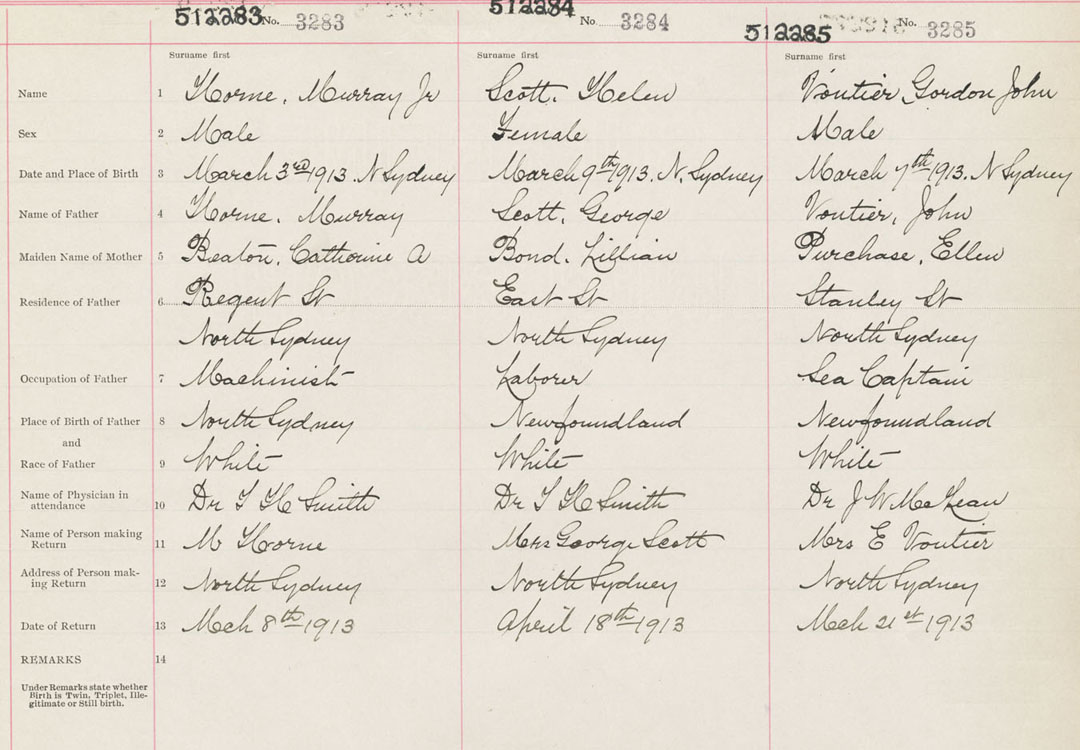 512283 No. 3283 512284 No. 3284 512285 No. 3285
Surname first Surname first Surname first
Name 1 Horne, Murray Jr Scott, Helen Voutier, Gordon John
Sex 2 Male Female Male
Date and Place of Birth 3 March 3rd 1913. N Sydney March 9th 1913. N. Sydney March 7th 1913. N Sydney
Name of Father 4 Horne, Murray Scott, George Voutier, John
Maiden Name of Mother 5 Beaton, Catherine A Bond, Lillian Purchase, Ellen
Residence of Father 6 Regent St East St Stanley St
North Sydney North Sydney North Sydney
Occupation of Father 7 Machinist Laborer Sea Captain
Place of Birth of Father 8 North Sydney Newfoundland Newfoundland
and
Race of Father 9 White White White
Name of Physician in
attendance 10 Dr Smith Dr Smith Dr J W McKean
Name of Person making
Return 11 M Horne Mrs George Scott Mrs E Voutier
Address of Person mak-
ing Return 12 North Sydney North Sydney North Sydney
Date of Return 13 Mch 8th 1913 April 18th 1913 Mch 21st 1913
REMARKS 14
Under Remarks state whether
Birth is Twin, Triplet, Ille-
gitimate or Still birth.